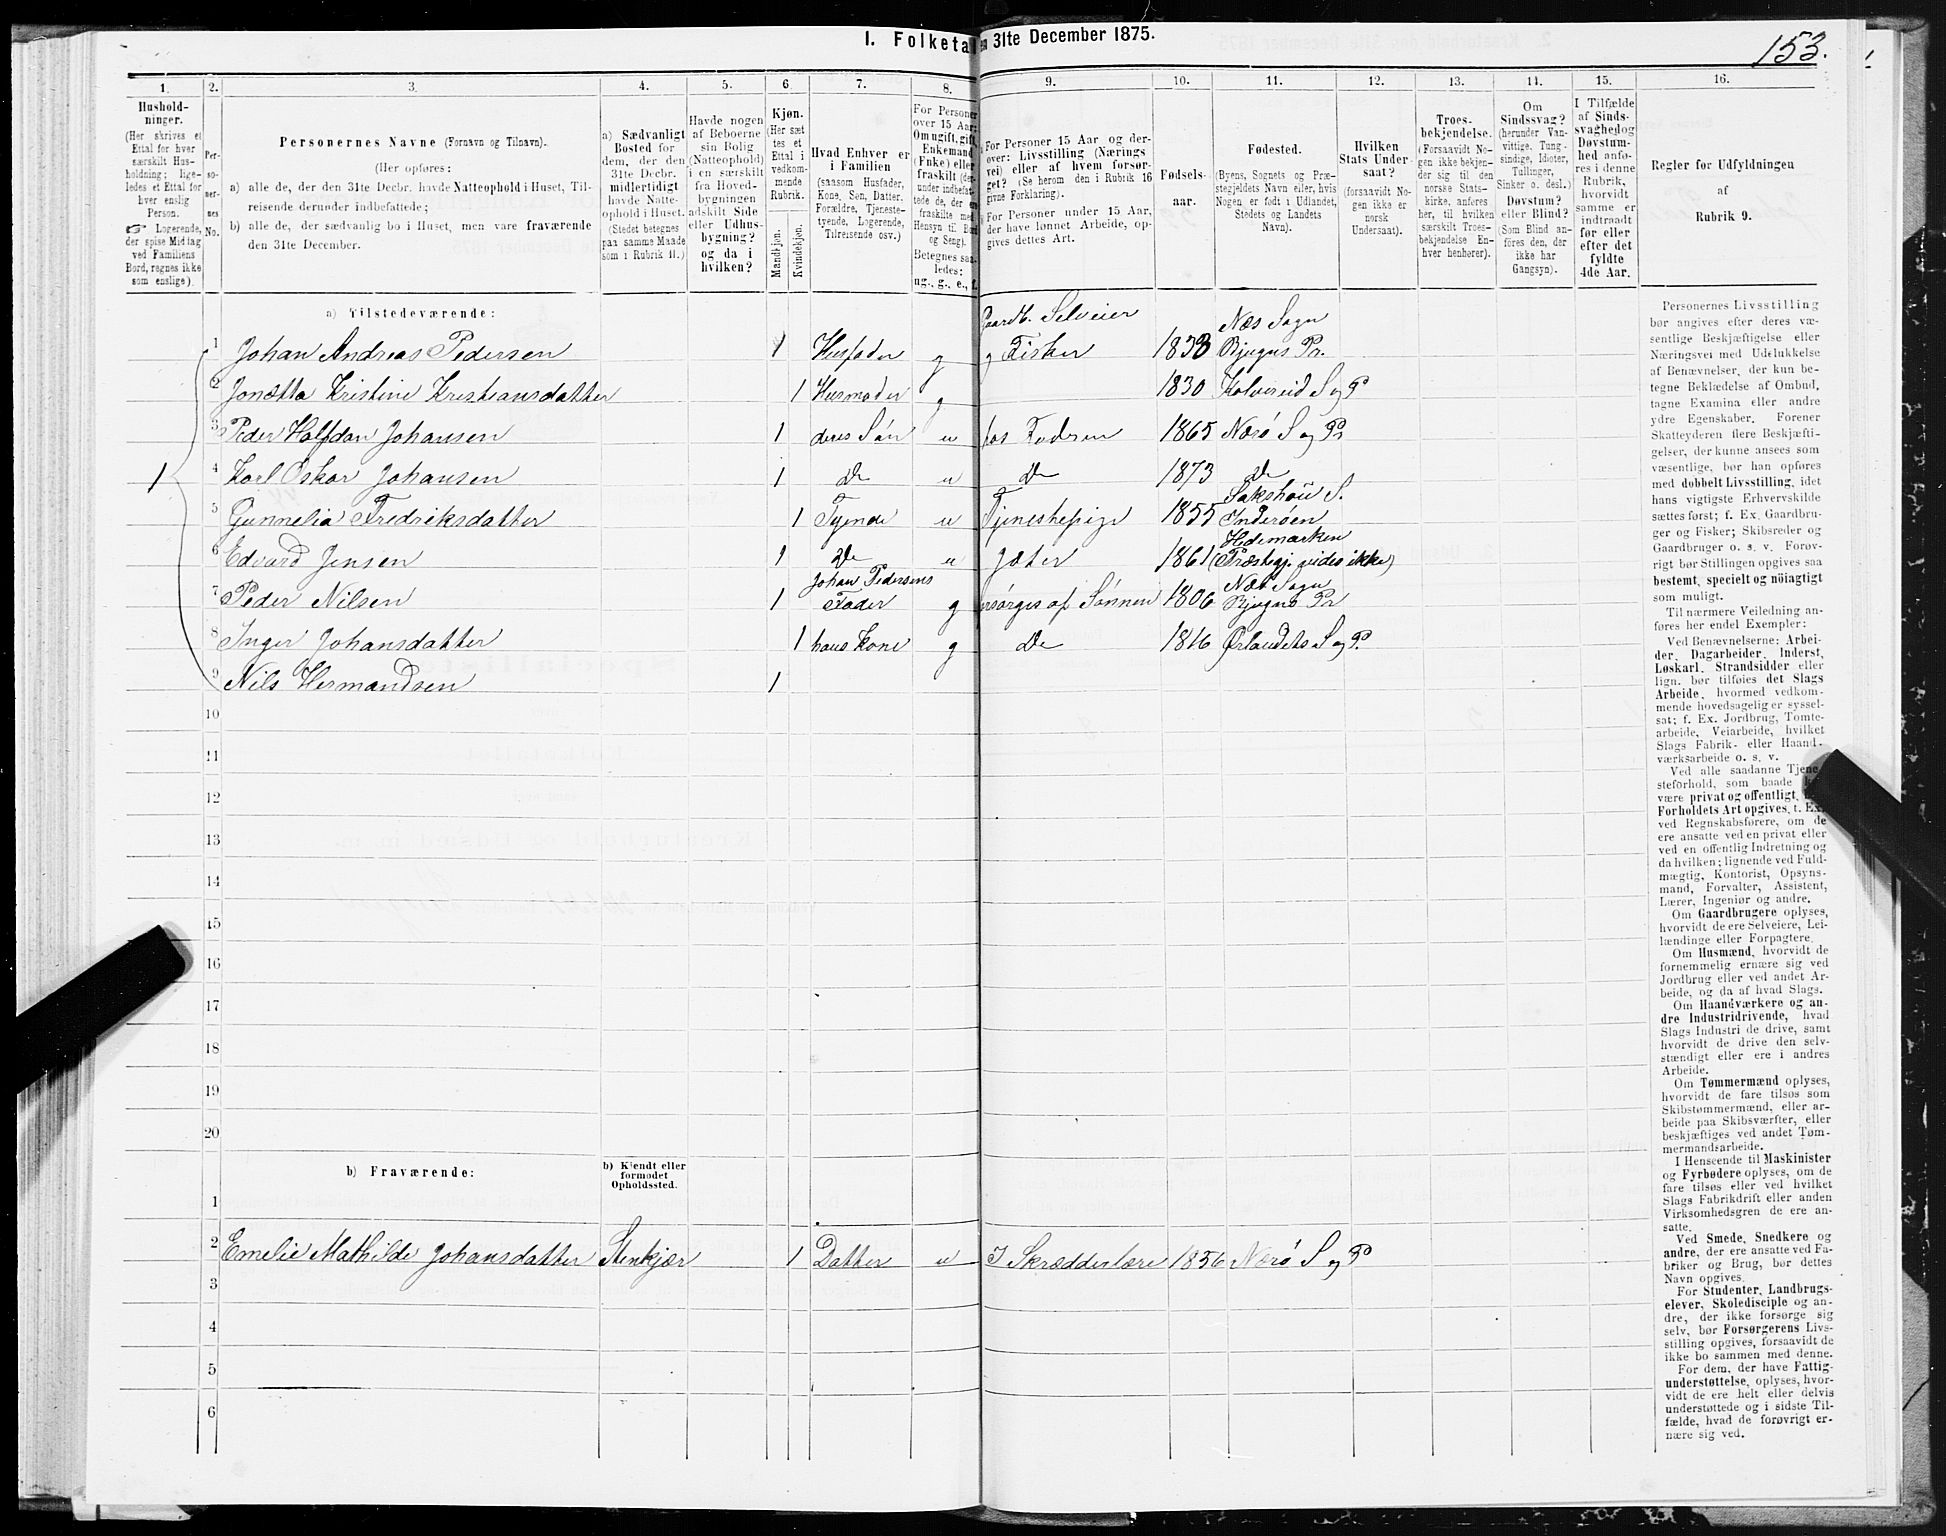 I. Folketa en 31te December 1875.
153.
1.
2.
3.
4.
5.
6.
7.
8.
9.
10.
11.
12.
13.
14.
15.
16.
Hushold-
ninger.
(Her skrives et
Ettal for hver
særskilt Hus-
holdning; lige-
ledes et Ettal for
hver enslig
Person.
☞ Logerende,
der spise Middag
ved Familiens
Bord, regnes ikke
som enslige).
Per-
so-
ner-
nes
No.
Personernes Navne (Fornavn og Tilnavn).
(Her opføres:
a) alle de, der den 31te Decbr. havde Natteophold i Huset, Til-
reisende derunder indbefattede;
b) alle de, der sædvanlig bo i Huset, men vare fraværende
den 31te December.
a) Sædvanligt
Bosted for
dem, der den
31te Decbr.
midlertidigt
havde Natte-
ophold i Huset.
(Stedet betegnes
paa samme Maade
som i Rubrik 11.)
Havde nogen
af Beboerne
sin Bolig
(Natteophold)
i en særskilt
fra Hoved-
bygningen
adskilt Side
eller Udhus-
bygning?
og da i
hvilken?
Kjøn.
(Her sæt
tes et
Ettal i
vedkom-
mende
Rubrik.
Mandkjøn.
Kvindekjøn.
Hvad Enhver er
i Familien
(saasom Husfader,
Kone, Søn, Datter,
Forældre, Tjeneste-
tyende, Logerende,
Tilreisende osv.)
For Personer
over 15 Aar:
Om ugift, gift,
Enkemand
(Enke) eller
fraskilt (der-
under indbefat-
tede de, der ere
fraskilte med
Hensyn til Bord
og Seng).
Betegnes saa-
ledes:
ug., g., e., f.
For Personer 15 Aar og der-
over: Livsstilling (Nærings
vei) eller af hvem forsør-
get? (Se herom den i Rubrik 16
givne Forklaring).
For Personer under 15 Aar,
der have lønnet Arbeide, op-
gives dettes Art.
Fødsels-
aar.
Fødested.
(Byens, Sognets og Præ-
stegjeldets Navn eller, hvis
Nogen er født i Udlandet,
Stedets og Landets
Navn).
Hvilken
Stats Under-
saat?
(forsaavidt No-
gen ikke er
norsk
Undersaat).
Troes-
bekjendelse.
(Forsaavidt No-
gen ikke bekjen-
der sig til den
norske Stats-
kirke, anføres
her, til hvilken
særskilt Troes-
bekjendelse En-
hver henhører).
Om
Sindssvag?
(herunder Van-
vittige, Tung-
sindige, Idioter,
Tullinger,
Sinker o. desl.)
Døvstum?
eller Blind?
(Som Blind an-
føres den, der
ikke har
Gangsyn).
I Tilfælde
af Sinds-
svaghed og
Døvstum-
hed anfø-
res i denne
Rubrik,
hvorvidt
samme er
indtraadt
før eller
efter det
fyldte
4de Aar.
Regler før Udfyldningen
af
Rubrik 9.
a) Tilstedeværende:
Gaardb. Selveier Næs Sogn
1 Johan Andreas Pedersen 1 Husfader g og Fisker 1833 Bjugns Pr.
2 Jonætta Kristine Kristiansdatter 1 Husmoder g 1830 Kolvereid S og P
3 Peder Halfdan Johansen 1 deres Søn u hos Fadren 1865 Nærø S og Pr
1
4 Karl Oskar Johansen 1 Do u Do 1873 Do
Sakshoug S.
5 Gunnelia Fredriksdatter 1 Tyende u Tjenestepige 1855 Inderøen
Hedemarken
6 Edvard Jensen 1 Do u Jæter 1861 (Præstegj. vides ikke)
Johan Pedersens Næs Sogn
7 Peder Nilsen 1 Fader g orsørges af Sønnen 1806 Bjugns Pr
8 Inger Johansdatter 1 hans Kone g Do 1816 Ørlandets S og P.
9 Nils Hermandsen 1
10
11
12
13
14
15
16
17
18
19
20
b) Fraværende:
b) Kjendt eller
formodet
Opholdssted.
1
2 Emelie Mathilde Johansdatter Stenkjær 1 Datter u I Skrædderlære 1856 Nærø S og P
3
4
5
6
Personernes Livsstilling
bør angives efter deres væ-
sentlige Beskjæftigelse eller
Næringsvei med Udelukkelse
af Benævnelser, der kun be-
tegne Beklædelse af Ombud,
tagne Examina eller andre
ydre Egenskaber. Forener
Skatteyderen flere Beskjæfti-
gelser, der kunne ansees som
væsentlige, bør han opføres
med dobbelt Livsstilling, idet
hans vigtigste Erhvervskilde
sættes først; f. Ex. Gaardbru-
ger og Fisker; Skibsreder og
Gaardbruger o. s. v. Forøv-
rigt bør Stillingen opgives saa
bestemt, specielt og nöiagtigt
som muligt.
Til nærmere Veiledning an-
føres her endel Exempler:
Ved Benævnelserne: Arbei-
der, Dagarbeider, Inderst,
Løskarl, Strandsidder eller
lign. bør tilføies det Slags
Arbeide, hvormed vedkom-
mende hovedsagelig er syssel-
sat; f. Ex. Jordbrug, Tomte-
arbeide, Veiarbeide, hvilket
Slags Fabrik- eller Haand-
værksarbeide o. s. v.
Ved alle saadanne Tjene-
steforhold, som baade k
være privat og offentligt,
Forholdets Art opgives, t. Ex.
ved Regnskabsførere, om de
ere ansatte ved en privat eller
ved en offentlig Indretning og
da hvilken; lignende ved Fuld-
mægtig, Kontorist, Opsyns-
mand, Forvalter, Assistent,
Lærer, Ingeniør og andre.
Om Gaardbrugere oplyses,
hvorvidt de ere Selveiere, Lei-
lændinge eller Forpagtere.
Om Husmænd, hvorvidt de
fornemmelig ernære sig ved
Jordbrug eller ved andet Ar-
beide, og da af hvad Slags.
Om Haandværkere og an-
dre Industridrivende, hvad
Slags Industri de drive, samt
hvorvidt de drive den selv-
stændigt eller ere i andres
Arbeide.
Om Tømmermænd oplyses,
hvorvidt de fare tilsøs som
Skibstømmermænd, eller ar-
beide paa Skibsværfter, eller
beskjæftiges ved andet Tøm-
mermandsarbeide.
I Henseende til Maskinister
og Fyrbødere oplyses, om de
fare tilsøs eller ved hvilket
Slags Fabrikdrift eller anden
Virksomhedsgren de ere an-
satte.
Ved Smede, Snedkere og
andre, der ere ansatte ved Fa-
briker og Brug, bør dettes
Navn opgives.
For Studenter, Landbrugs-
elever, Skoledisciple og an-
dre, der ikke forsørge sig
selv, bør Forsørgerens Livs-
stilling opgives, forsaavidt de
ikke bo sammen med denne.
For dem, der have Fattig-
understøttelse, oplyses, hvor-
vidt de ere helt eller delvis
understøttede og i sidste Til-
fælde, hvad de forøvrigt er-
nære sig ved.